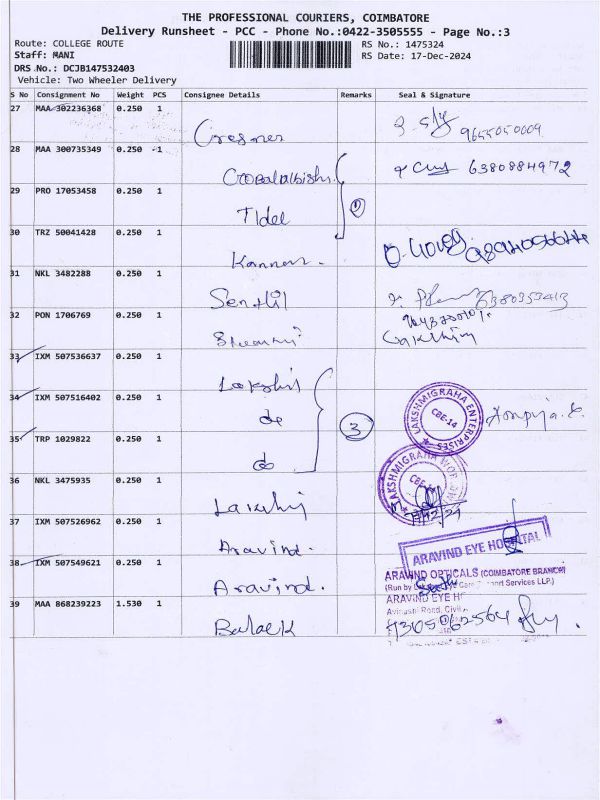 THE PROFESSIONAL COURIERS, COIMBATORE
Delivery Runsheet - PCC - Phone No.:0422-3505555 - Page No.:3
Route: COLLEGE ROUTE
RS No.: 1475324
Staff: MANI
RS Date: 17-Dec-2024
DRS No.: DCJB147532403
Vehicle: Two Wheeler Delivery
S No Consignment No Weight PCS Consignee Details Remarks Seal & Signature
27 MAA 302236368 0.250 1
9655050009
28 MAA 300735349 0.250 1
6380884972
29 PRO 17053458 0.250 1 Tidel
30 TRZ 50041428 0.250 1 Kannan.
31 NKL 3482288 0.250 1 Senthil
6380353413
32 PON 1706769 0.250 1
33 IXM 507536637 0.250 1 Lakshi
34 IXM 507516402 0.250 1 do
LAKSHMIGRAHA ENTERPRISES
CBE-14
35 TRP 1029822 0.250 1 do
3
36 NKL 3475935 0.250 1
LAKSHMIGRAHA
37 IXM 507526962 0.250 1 Aravind.
ARAVIND EYE HOSPITAL
38 IXM 507549621 0.250 1 Aravind.
ARAVIND OPTICALS (COIMBATORE BRANCH)
(Run by Services LLP.)
ARAVIND EYE
39 MAA 868239223 1.530 1
Avinashi Road, Civil